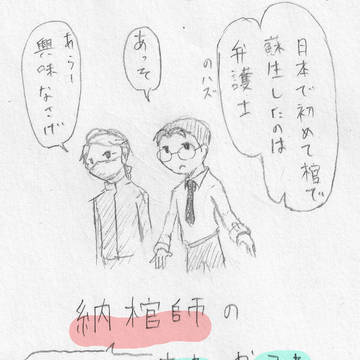 日本で初めて棺で
蘇生したのは
弁護士
のハズ
あっそ
あらー
興味なさげ
納棺師の